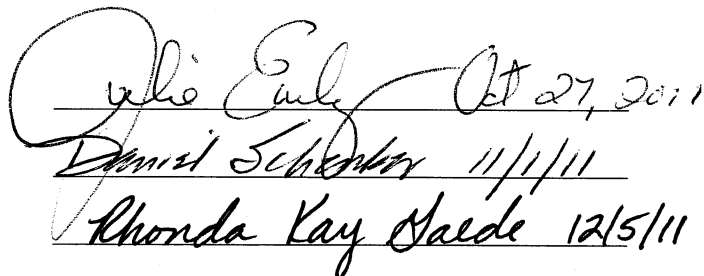 Julie Early Oct 27, 2011
Daniel Schenker 11/1/11
Rhonda Kay Gaede 12/5/11